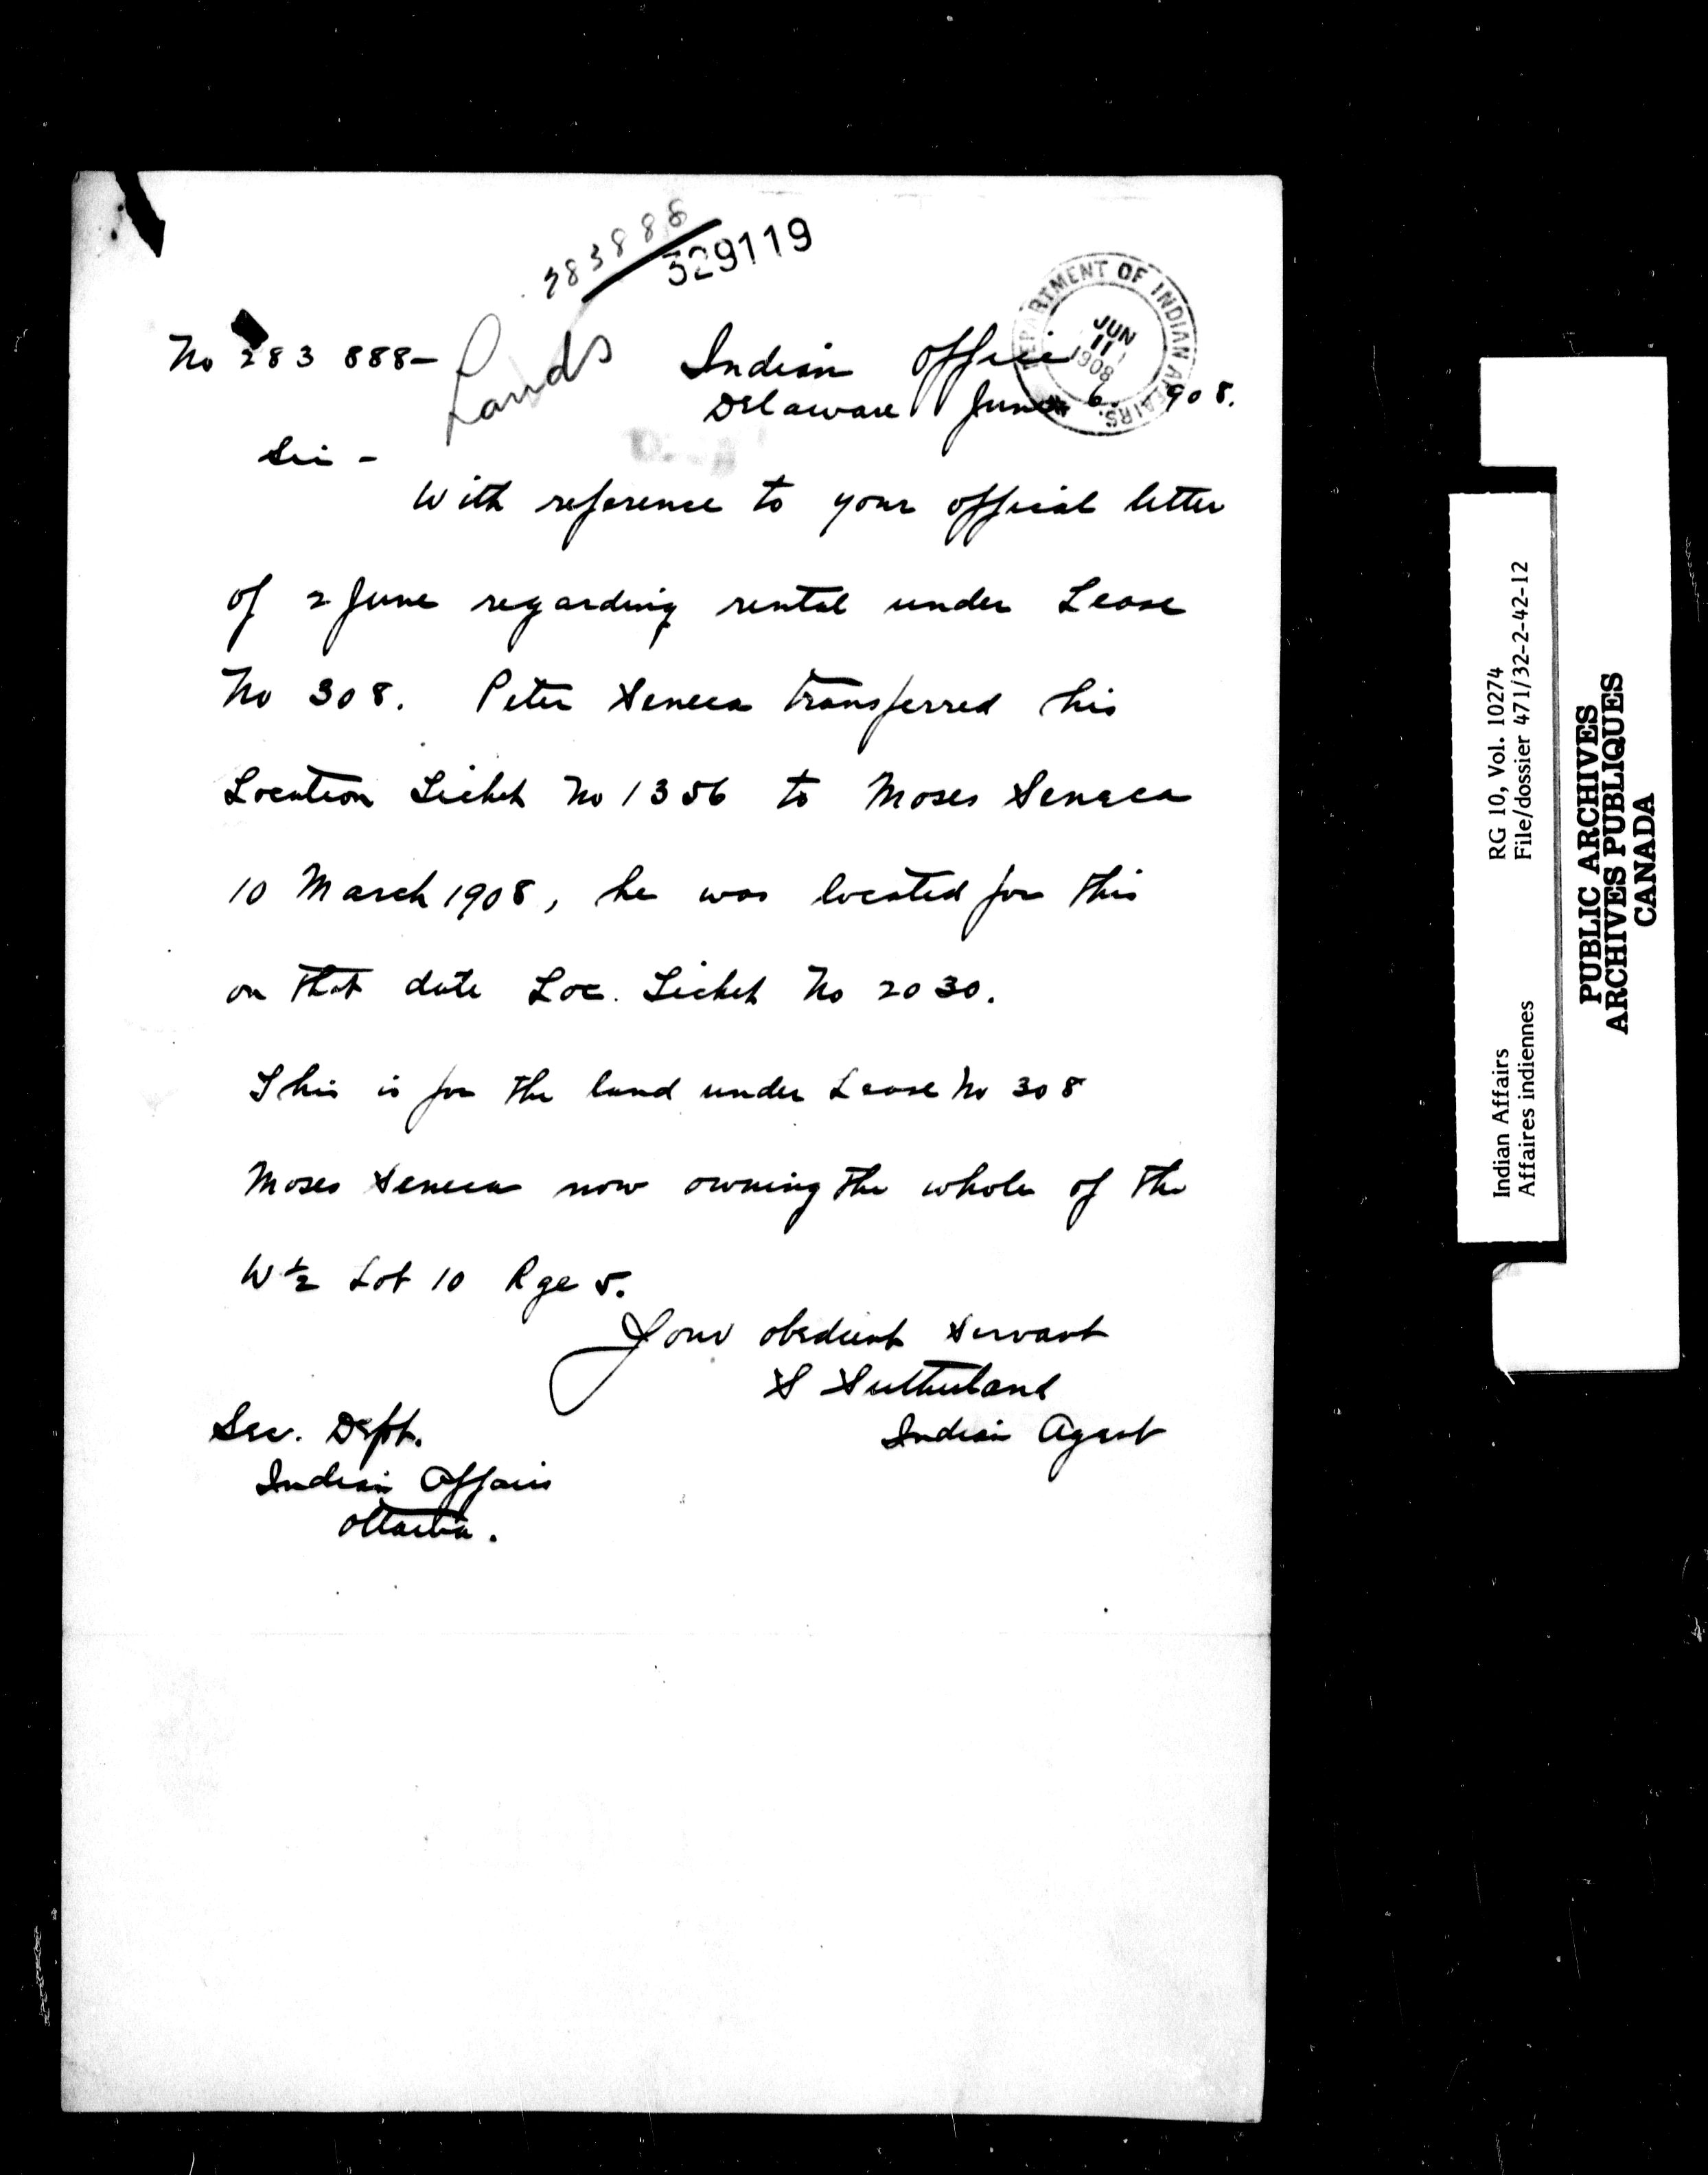 283888
329119
DEPARTMENT OF INDIAN AFFAIRS.
JUN
11
1908
No 283 888-
Lands
Indian Office
Delaware June 6. 1908.
Sir -
With reference to your offical letter
of 2 June regarding rental under Lease
No 308. Peter Seneca transferred his
Location Ticket No 1356 to Moses Seneca
10 March 1908, he was located for this
on that date Loc. Ticket No 2030.
This is for the land under Lease No 308
Moses Seneca now owning the whole of the
W ½ Lot 10 Rge 5.
Your obedient Servant
S Sutherland
Indian Agent
Sec. Dept.
Indian Affairs
Ottawa.
Indian Affairs RG 10, Vol. 10274
Affaires indiennes File/dossier 471/32-2-42-12
PUBLIC ARCHIVES
ARCHIVES PUBLIQUES
CANADA